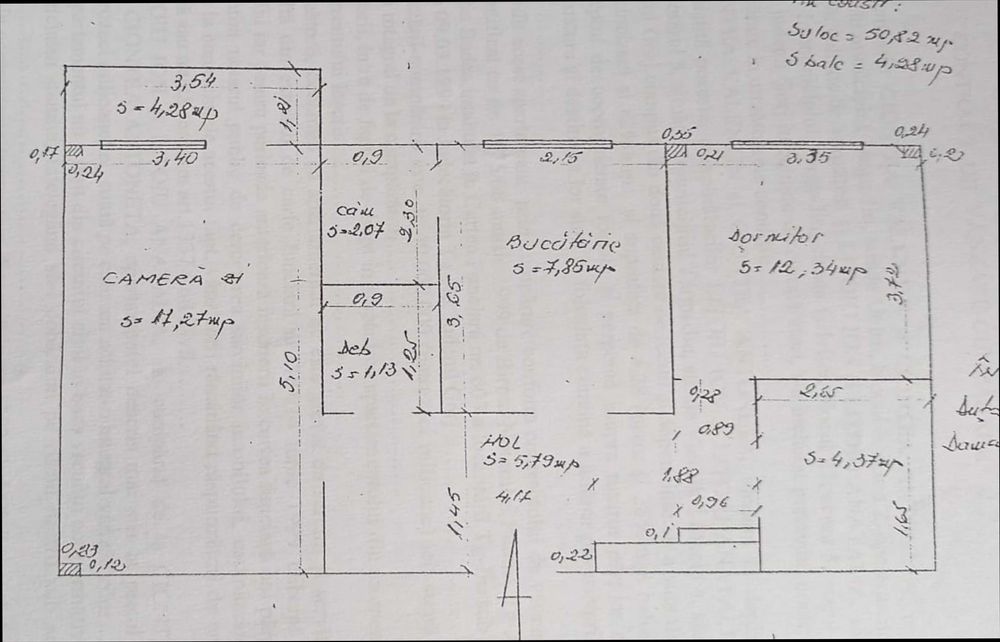 constr:
Suloc = 50,82 mp
S balc = 4,28 mp
3,54
S = 4,28 mp
1,21
0,17
3,40
0,24
0,9
2,15
0,35
0,21
3,35
0,24
Căm
S=2,07
2,30
BUCĂTĂRIE
S = 7,85 mp
Dormitor
S = 12,34 mp
3,72
CAMERĂ ZI
S = 17,27 mp
0,9
3,65
Deb
S = 1,13
1,25
5,10
0,28
2,65
0,89
HOL
S = 5,79 mp
4,17
1,45
1,88
0,96
S = 4,37 mp
1,65
0,1
0,22
0,23
0,12